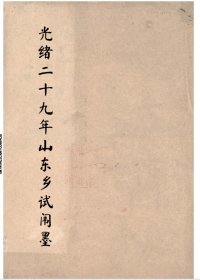 光绪二十九年山东乡试闱墨